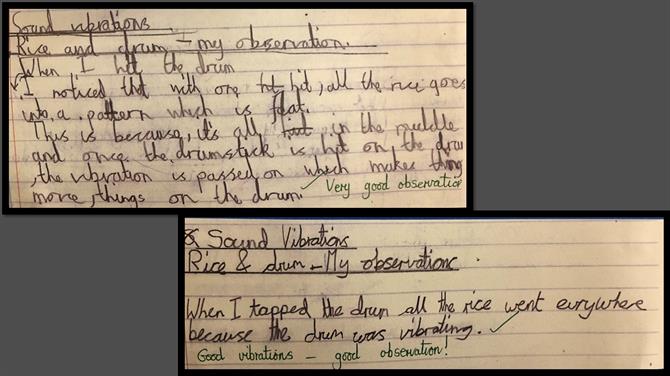 Sound vibrations
Rice and drum - my observation.
When I hit the drum
I noticed that with one hit, all the rice goes
into a pattern which is flat.
This is because, its all in the middle
and once the drumstick is hit on the drum
, the vibration is passed on which makes thing
move, things on the drum.
Very good observation
Sound Vibrations
Rice & drum - My observations
When I tapped the drum all the rice went eurywhere
because the drum was vibrating.
Good vibrations - good observation!